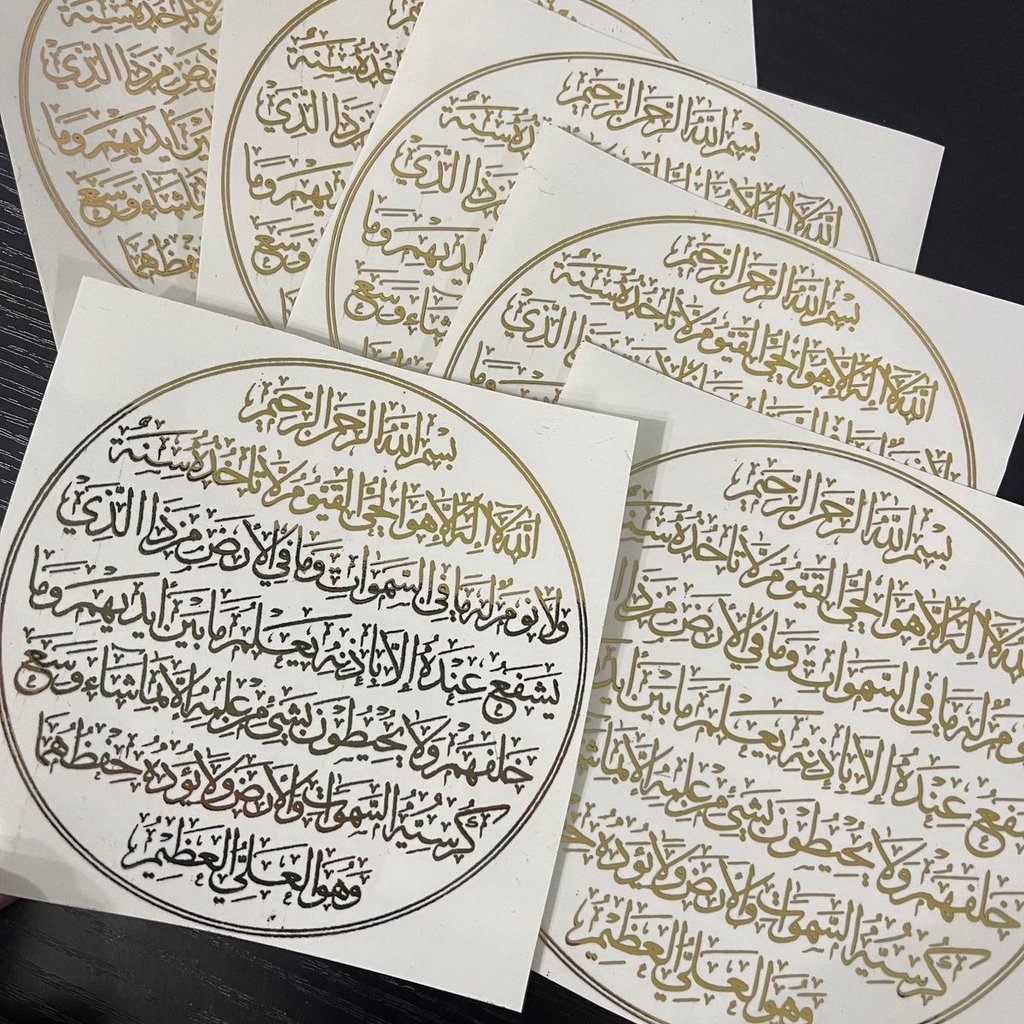 بسم الله الرحمن الرحيم
الله لا إله إلا هو الحي القيوم لا تأخذه سنة
ولا نوم له ما في السموات وما في الأرض من ذا الذي
يشفع عنده إلا بإذنه يعلم ما بين أيديهم وما
خلفهم ولا يحيطون بشيء من علمه إلا بما شاء وسع
كرسيه السموات والأرض ولا يؤده حفظهما
وهو العلي العظيم
بسم الله الرحمن الرحيم
لا إله إلا هو الحي القيوم لا تأخذه سنة
له ما في السموات وما في الأرض من ذا
عنده إلا بإذنه يعلم ما بين
خلفهم ولا يحيطون بشيء من علمه إلا
كرسيه السموات والأرض ولا يؤده
وهو العلي العظيم
بسم الله الرحمن الرحيم
الله لا إله إلا هو الحي القيوم لا تأخذه سنة
الذي
وما
بسم الله الرحمن الرحيم
الله لا إله إلا
سنة
الذي
أيديهم وما
شاء وسع
خذه سنة
ذا الذي
أيديهم وما
وسع
تأخذه سنة
من ذا الذي
أيديهم وما
شاء وسع
حفظهما